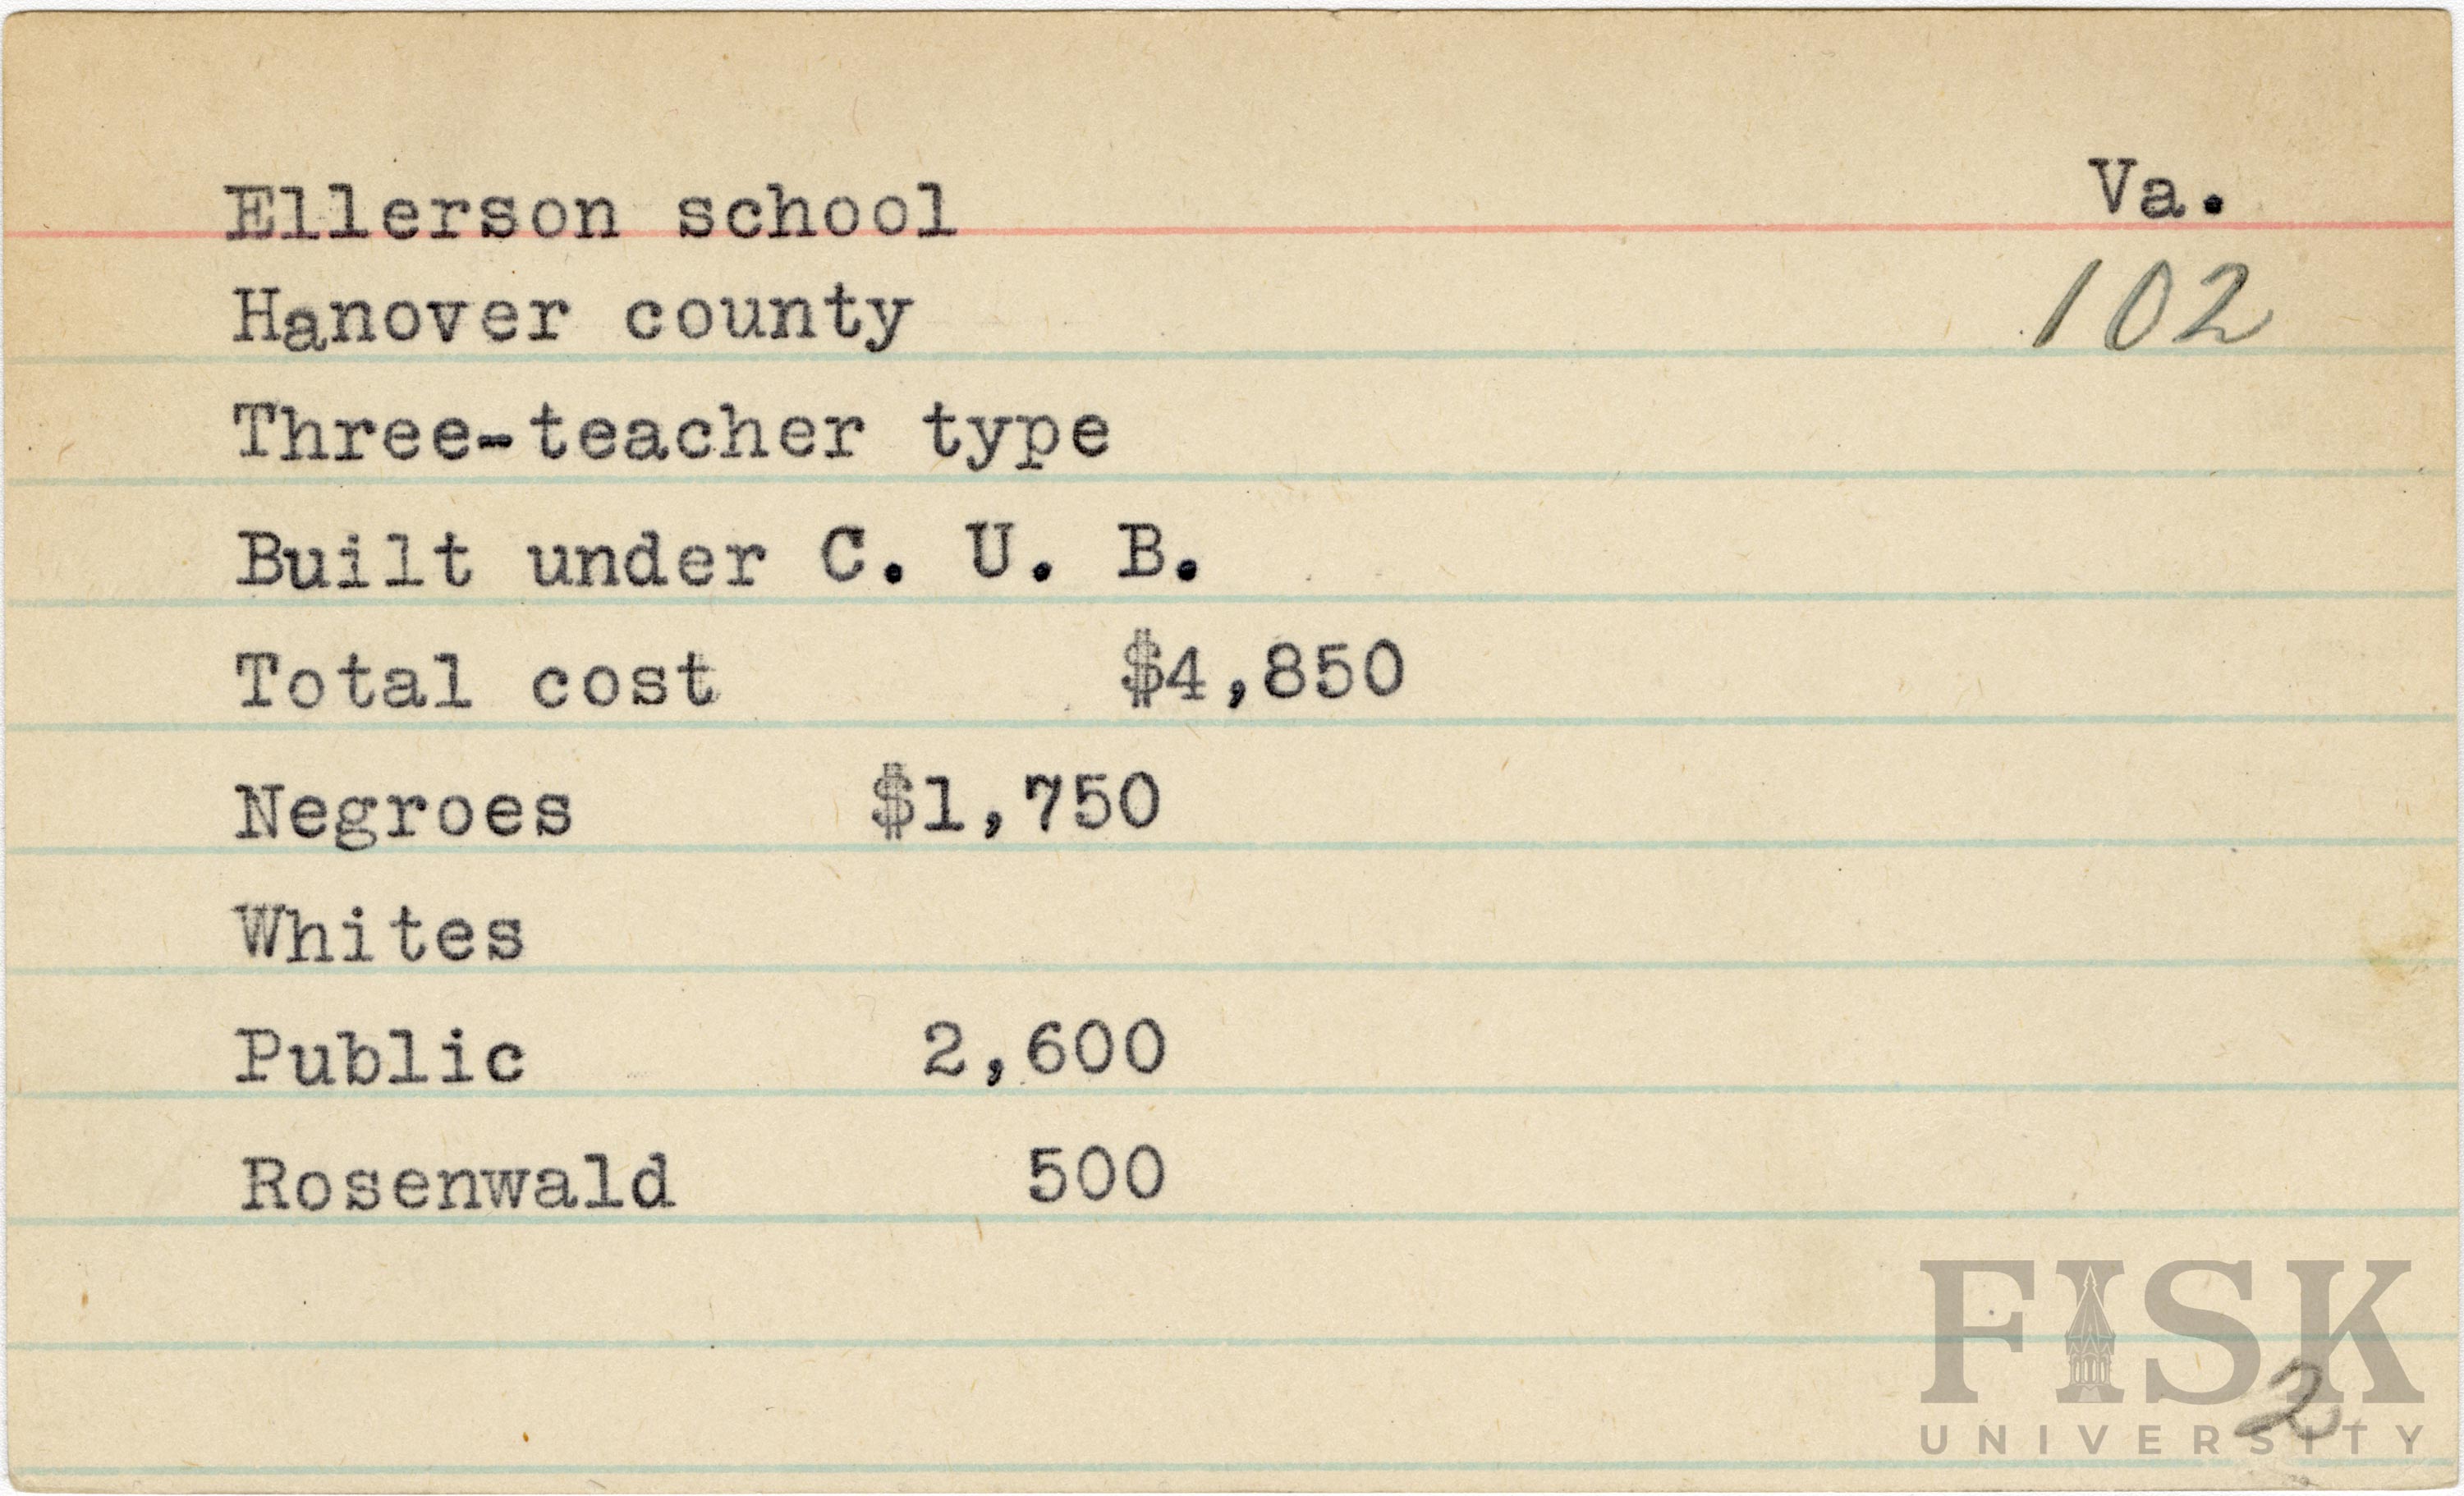 Ellerson school Va.
Hanover county 102
Three-teacher type
Built under C. U. B.
Total cost $4,850
Negroes $1,750
Whites
Public 2,600
Rosenwald 500
FISK
2
UNIVERSITY